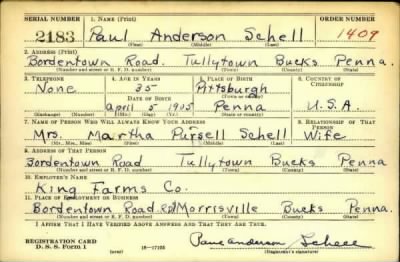 SERIAL NUMBER 1. NAME (Print) ORDER NUMBER
2183 Paul Anderson Schell 1409
(First) (Middle) (Last)
2. ADDRESS (Print)
Bordentown Road. Tullytown Bucks Penna.
(Number and street or R. F. D. number) (Town) (County) (State)
3. TELEPHONE 4. AGE IN YEARS 5. PLACE OF BIRTH 6. COUNTRY OF CITIZENSHIP
None 35 Pittsburgh
DATE OF BIRTH (Town or county)
April 5 1905 Penna U.S.A.
(Exchange) (Number) (Mo.) (Day) (Yr.) (State or country)
7. NAME OF PERSON WHO WILL ALWAYS KNOW YOUR ADDRESS 8. RELATIONSHIP OF THAT PERSON
Mrs. Martha Pursell Schell Wife
(Mr., Mrs., Miss) (First) (Middle) (Last)
9. ADDRESS OF THAT PERSON
Bordentown Road Tullytown Bucks Penna
(Number and street or R. F. D. number) (Town) (County) (State)
10. EMPLOYER'S NAME
King Farms Co.
11. PLACE OF EMPLOYMENT OR BUSINESS
Bordentown Road Morrisville Bucks Penna.
(Number and street or R. F. D. number) (Town) (County) (State)
I AFFIRM THAT I HAVE VERIFIED ABOVE ANSWERS AND THAT THEY ARE TRUE.
REGISTRATION CARD
D. S. S. Form 1 (over) 16-17105 Paul Anderson Schell
(Registrant's signature)